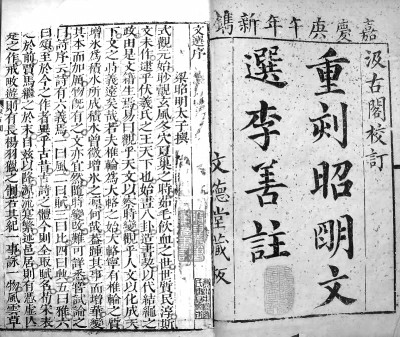 嘉慶庚午年新鐫
汲古閣校訂
重刻昭明文
選李善註
文德堂藏板
文選序
梁昭明太子撰
式觀元始眇覿玄風冬穴夏巢之時茹毛飲血之世世質民淳斯
文未作逮乎伏羲氏之王天下也始畫八卦造書契以代結繩之
政由是文籍生焉易曰觀乎天文以察時變觀乎人文以化成天
下文之時義遠矣哉若夫椎輪為大輅之始大輅寧有椎輪之質
增冰為積水所成積水曾微增冰之凜何哉蓋踵其事而增華變
其本而加厲物既有之文亦宜然隨時變改難可詳悉嘗試論之
曰詩序云詩有六義焉一曰風二曰賦三曰比四曰興五曰雅六
曰頌至於今之作者異乎古昔古詩之體今則全取賦名荀宋表
之於前賈馬繼之於末自茲以降源流寔繁述邑居則有憑虛亡
是之作戒畋遊則有長楊羽獵之制若其紀一事詠一物風雲草